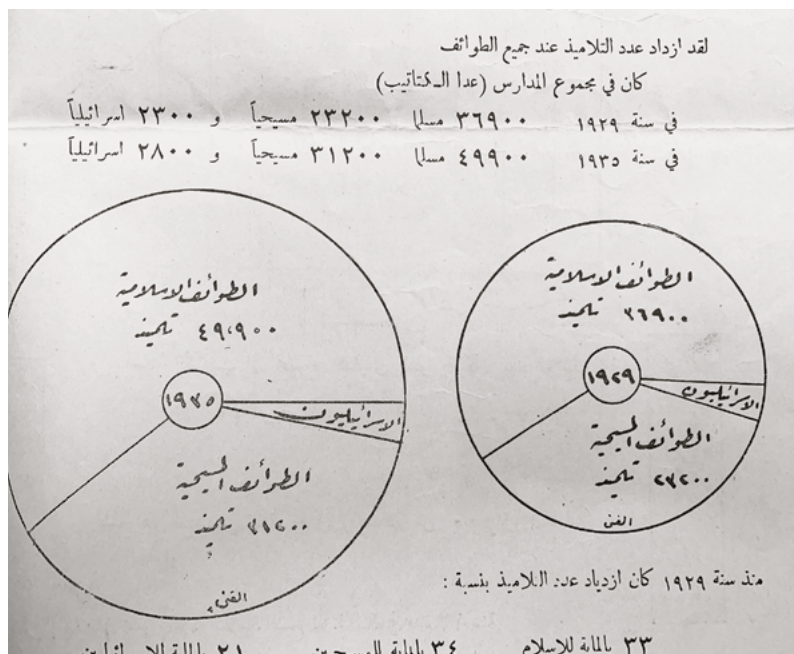 لقد ازداد عدد التلاميذ عند جميع الطوائف
كان في مجموع المدارس (عدا الكتاتيب)
في سنة ١٩٢٩ ٣٦٩٠٠ مسلما ٢٣٢٠٠ مسيحياً و ٢٣٠٠ اسرائيلياً
في سنة ١٩٣٥ ٤٩٩٠٠ مسلما ٣١٢٠٠ مسيحياً و ٢٨٠٠ اسرائيلياً
الطوائف الاسلامية
٣٦٩٠٠ تلميذ
١٩٢٩
الاسرائيليون
الطوائف المسيحية
٢٣٢٠٠ تلميذ
الطوائف الاسلامية
٤٩،٩٠٠ تلميذ
١٩٣٥
الاسرائيليون
الطوائف المسيحية
٣١٢٠٠ تلميذ
منذ سنة ١٩٢٩ كان ازدياد عدد التلاميذ بنسبة :
٣٣ بالماية للاسلام ٣٤ بالماية للمسيحيين ٢١ بالماية للاسرائيليين